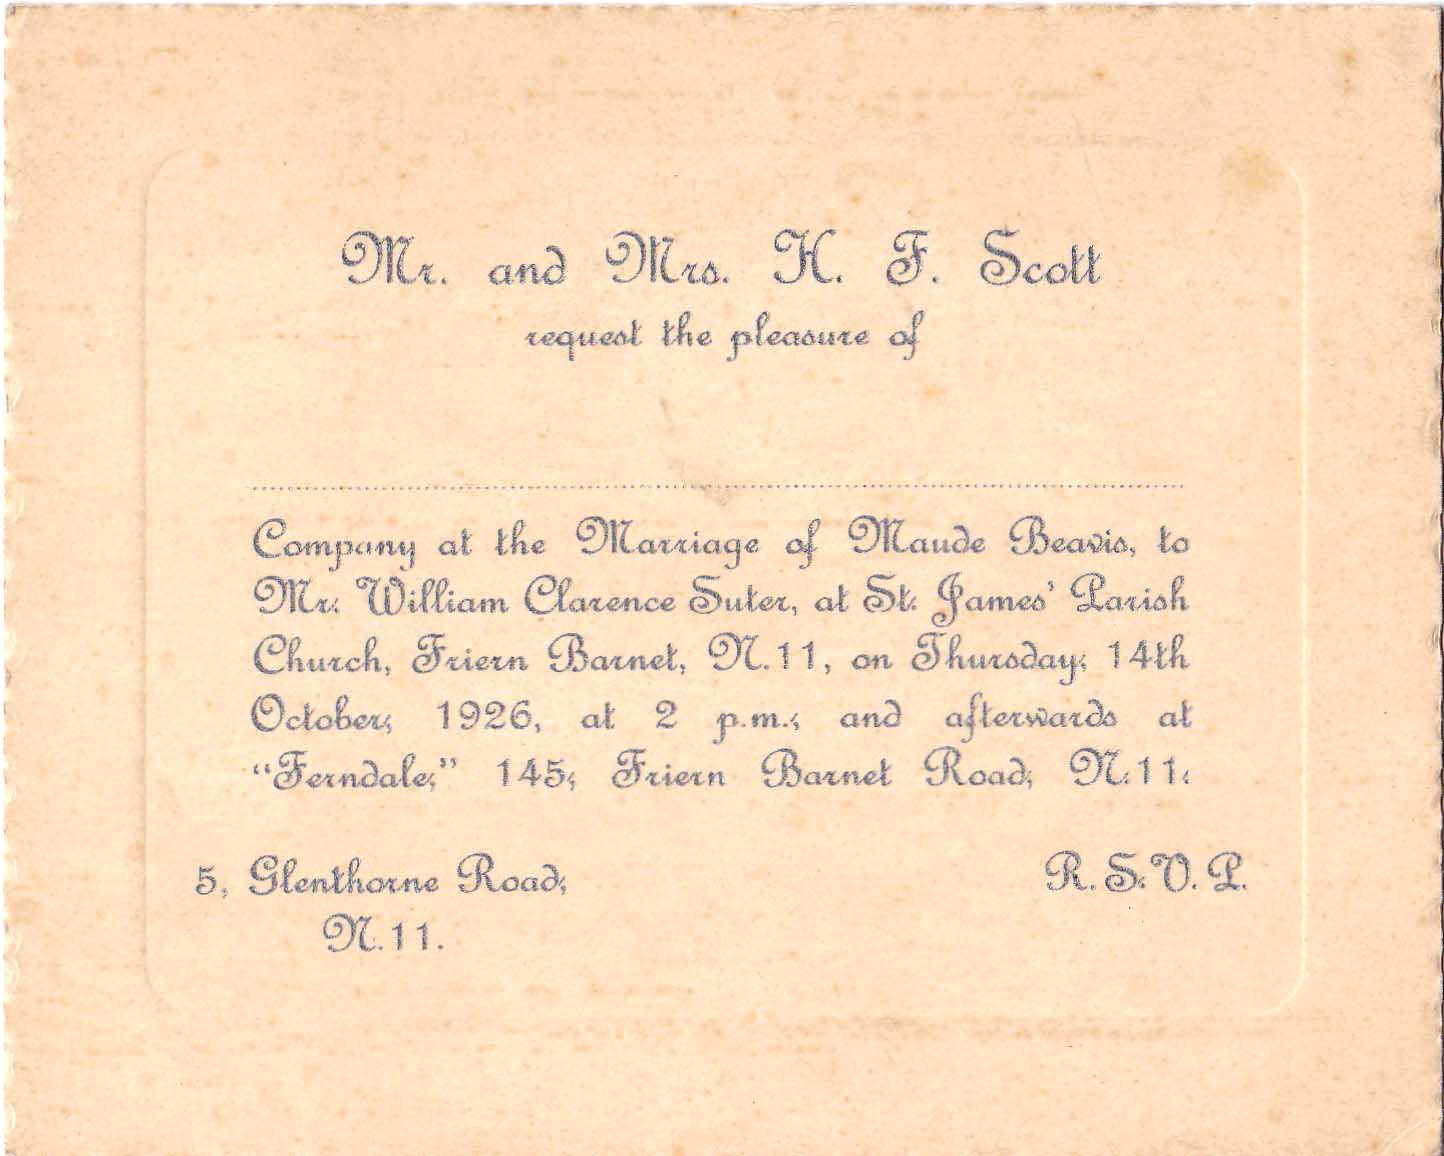 Mr. and Mrs. H. F. Scott
request the pleasure of
Company at the Marriage of Maude Beavis, to
Mr. William Clarence Suter, at St. James' Parish
Church, Friern Barnet, N.11, on Thursday, 14th
October, 1926, at 2 p.m., and afterwards at
“Ferndale,” 145, Friern Barnet Road, N.11.
5, Glenthorne Road,
R. S. V. P.
N.11.